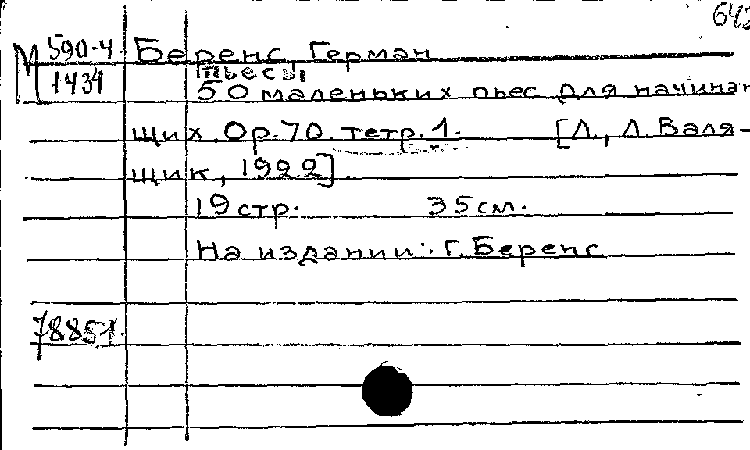 642
М 590-4
1434
Беренс, Герман
Пьесы
50 маленьких пьес для начинаю-
щих. Ор.70. тетр.1. [Л., Д. Валя-
щик, 1922]
19 стр. 35 см.
На издании: Г. Беренс
78851